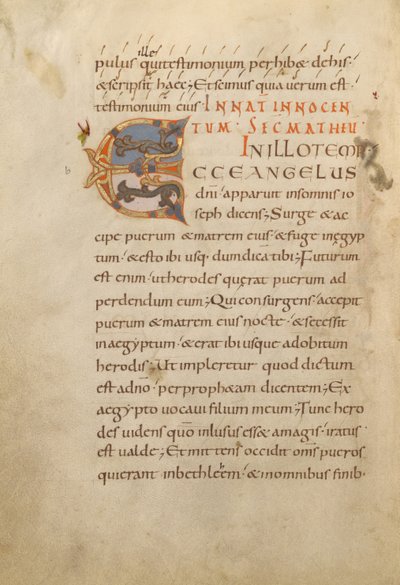 ille
pulus qui testimonium perhib& dehis·
& scripsit haec; Et scimus quia uerum est
testimonium eius IN NAT INNOCEN
TUM· SEC MATHEU
IN ILLO TEMP
ECCE ANGELUS
dnī· apparuit in somnis io
seph dicens; Surge & ac
cipe puerum & matrem eius· & fuge in ęgyp
tum· & esto ibi usq· dum dica tibi; Futurum
est enim· ut herodes quęrat puerum ad
perdendum eum; Qui consurgens· accepit
puerum & matrem eius nocte· & secessit
in aegyptum· & erat ibi usque ad obitum
herodis· Ut impleretur quod dictum
est a dno· per proph&am dicentem; Ex
aegypto uocaui filium meum; Tunc hero
des uidens quō inlusus ess& a magis· iratus
est ualde; Et mittens occidit oms pueros
qui erant in bethleem· & in omnibus finib·